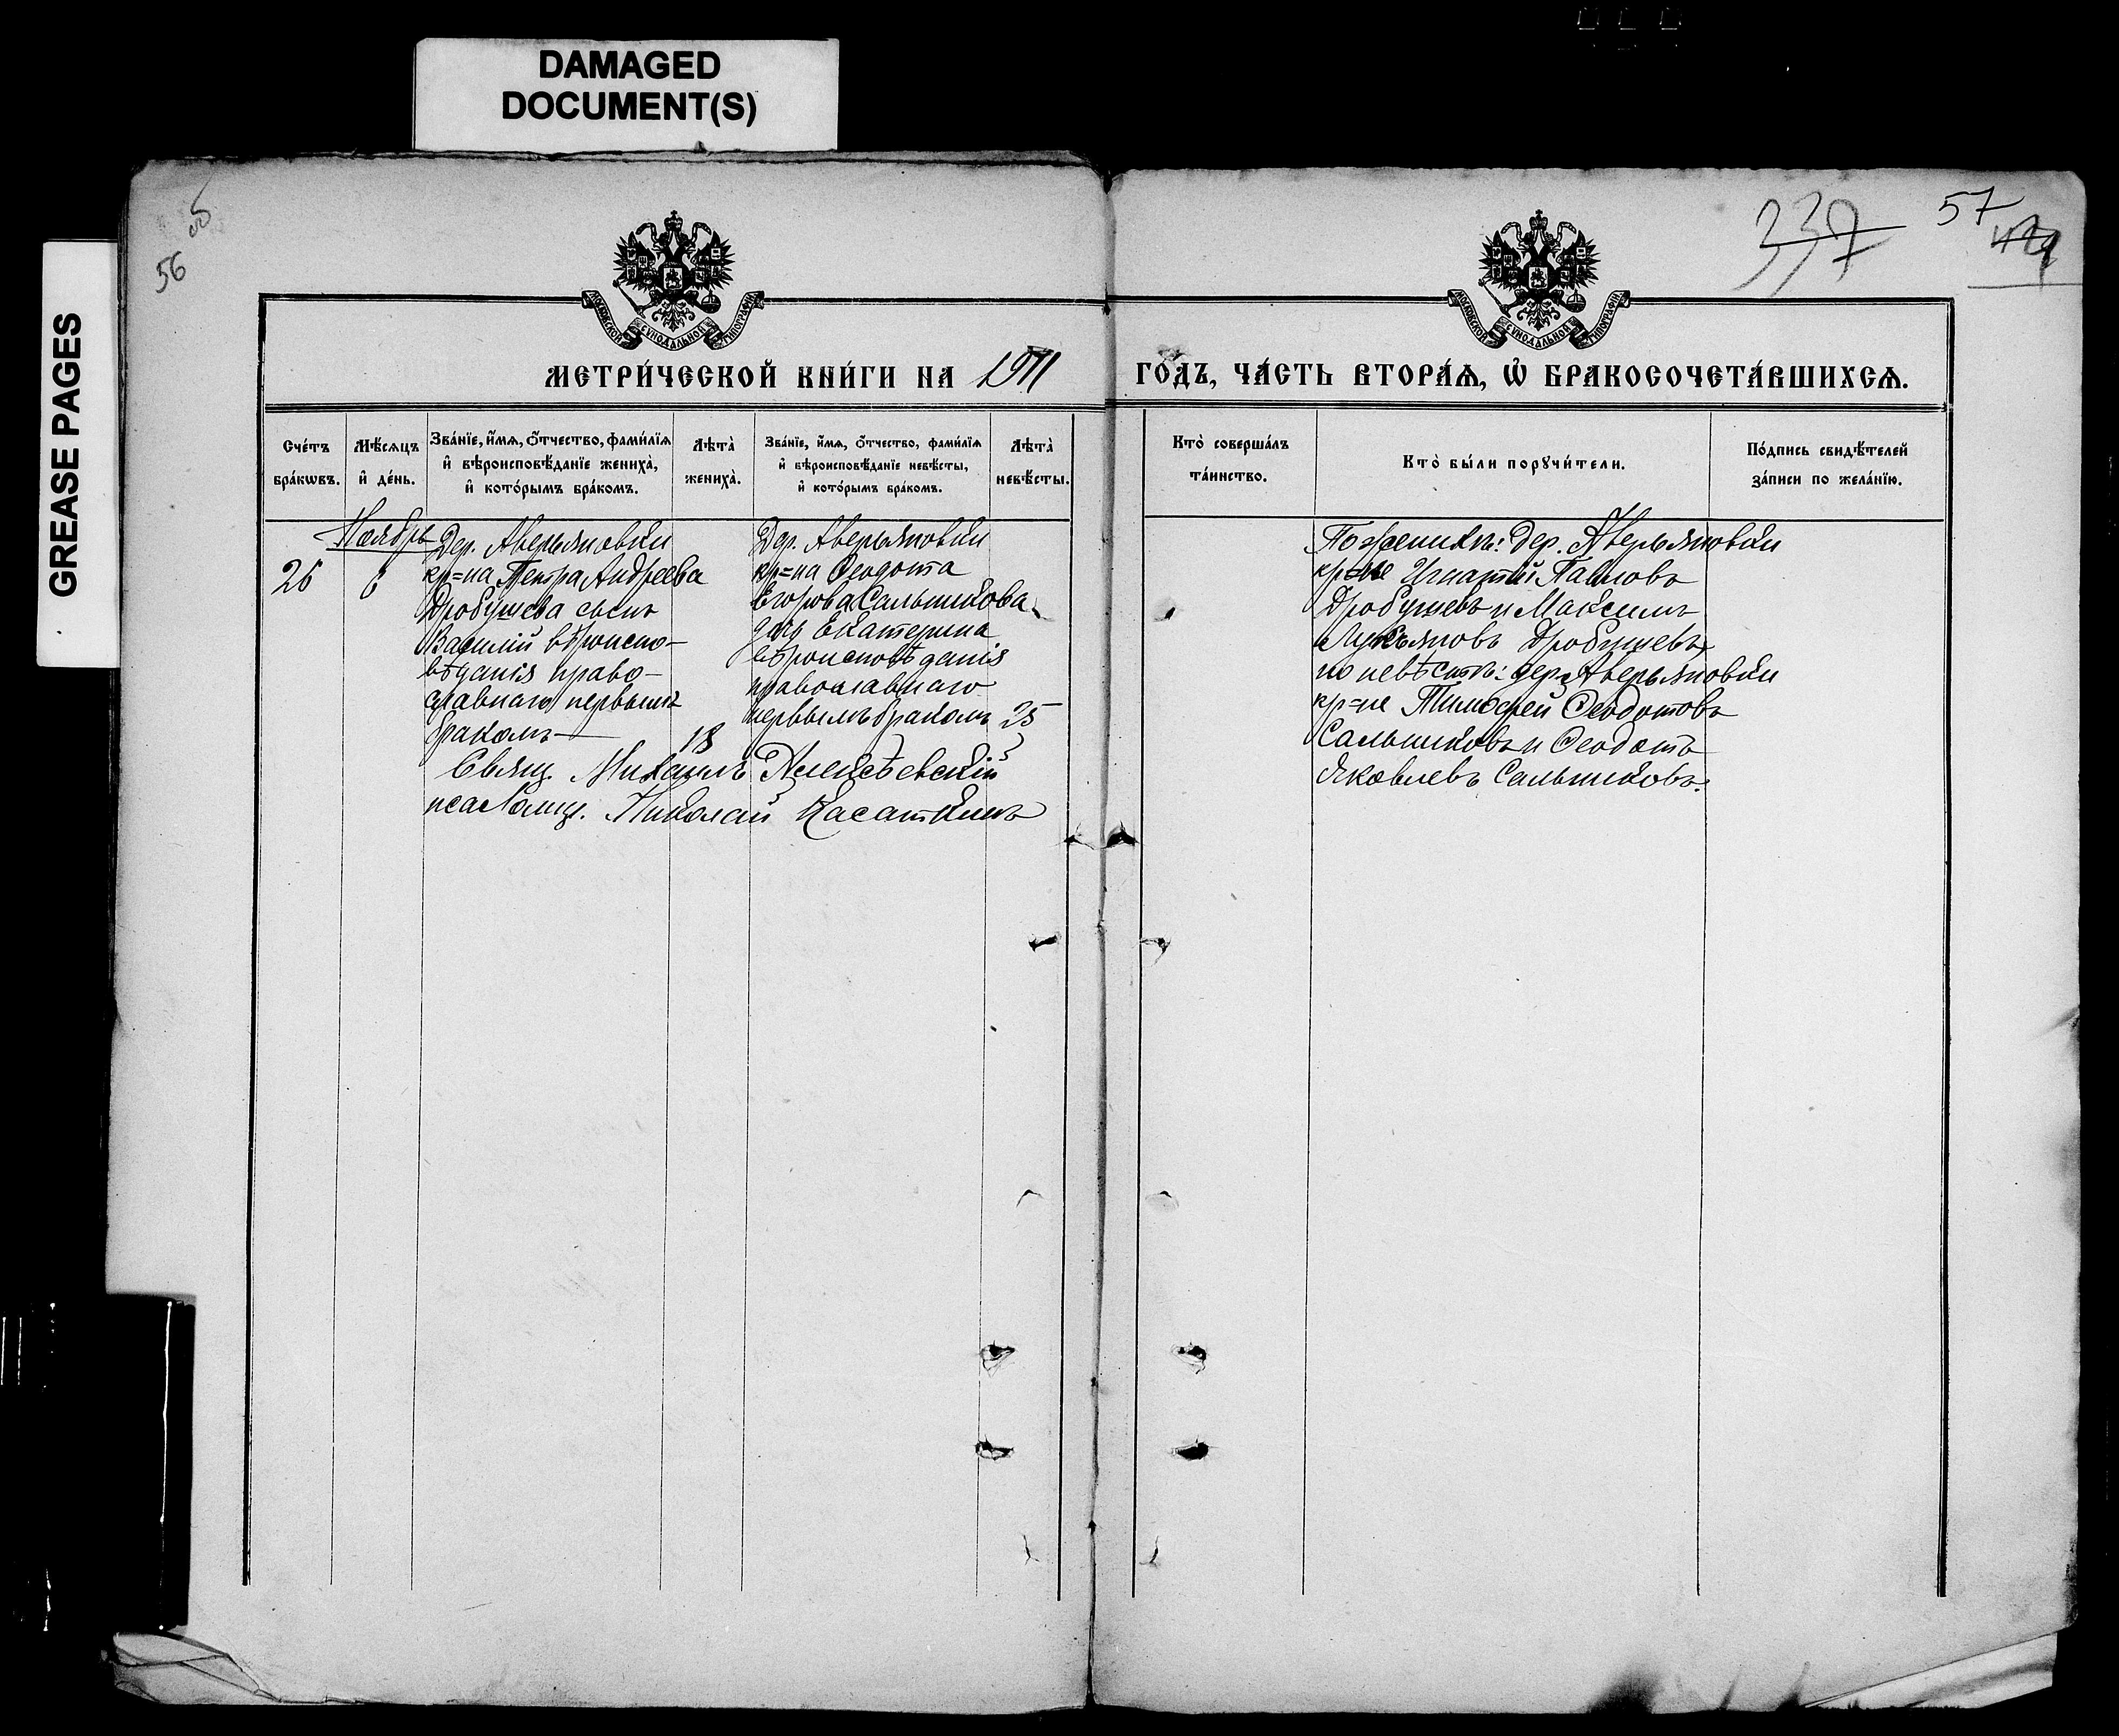 DAMAGED
DOCUMENT(S)
GREASE PAGES
56
57
337
МОСКОВСКОЙ СѴНОДАЛЬНОЙ ТИПОГРАФІИ
МОСКОВСКОЙ СѴНОДАЛЬНОЙ ТИПОГРАФІИ
МЕТРИ́ЧЕСКОЙ КНИ́ГИ НА 1911 ГО́ДЪ, ЧА́СТЬ ВТОРА́Ѧ, Ѡ҆ БРАКОСОЧЕТА́ВШИХСѦ.
Сче́тъ
бра́кѡвъ.
Мѣ́сѧцъ
и҆ де́нь.
Зва́нїе, и҆́мѧ, ѻ҆́тчество, фами́лїѧ
и҆ вѣроисповѣ́данїе жениха̀,
и҆ кото́рымъ бра́комъ.
Лѣта̀
жениха̀.
Зва́нїе, и҆́мѧ, ѻ҆́тчество, фами́лїѧ
и҆ вѣроисповѣ́данїе невѣ́сты,
и҆ кото́рымъ бра́комъ.
Лѣта̀
невѣ́сты.
Кто̀ соверша́лъ
та́инство.
Кто̀ бы́ли порꙋчи́тели.
По́дпись свидѣ́телей
за́писи по жела́нїю.
Ноябрь
26
6
Дер. Аверьяновки
кр=на Петра Андреева
Дробушева сынъ
Василій вѣроиспо-
вѣданія право-
славнаго первымъ
бракомъ
18
Дер. Аверьяновки
кр=на Ѳеодота
Егорова Сальникова
дочь Екатерина
вѣроисповѣданія
православнаго
первымъ бракомъ
25
Свящ. Михаилъ Алексѣевскій
псаломщ. Николай Касаткинъ
По женихѣ: дер. Аверьяновки
кр=не Игнатій Павловъ
Дробушевъ и Максимъ
Лукьяновъ Дробушевъ
по невѣстѣ: дер. Аверьяновки
кр=не Тимофей Ѳеодотовъ
Сальниковъ и Ѳеодотъ
Яковлевъ Сальниковъ.